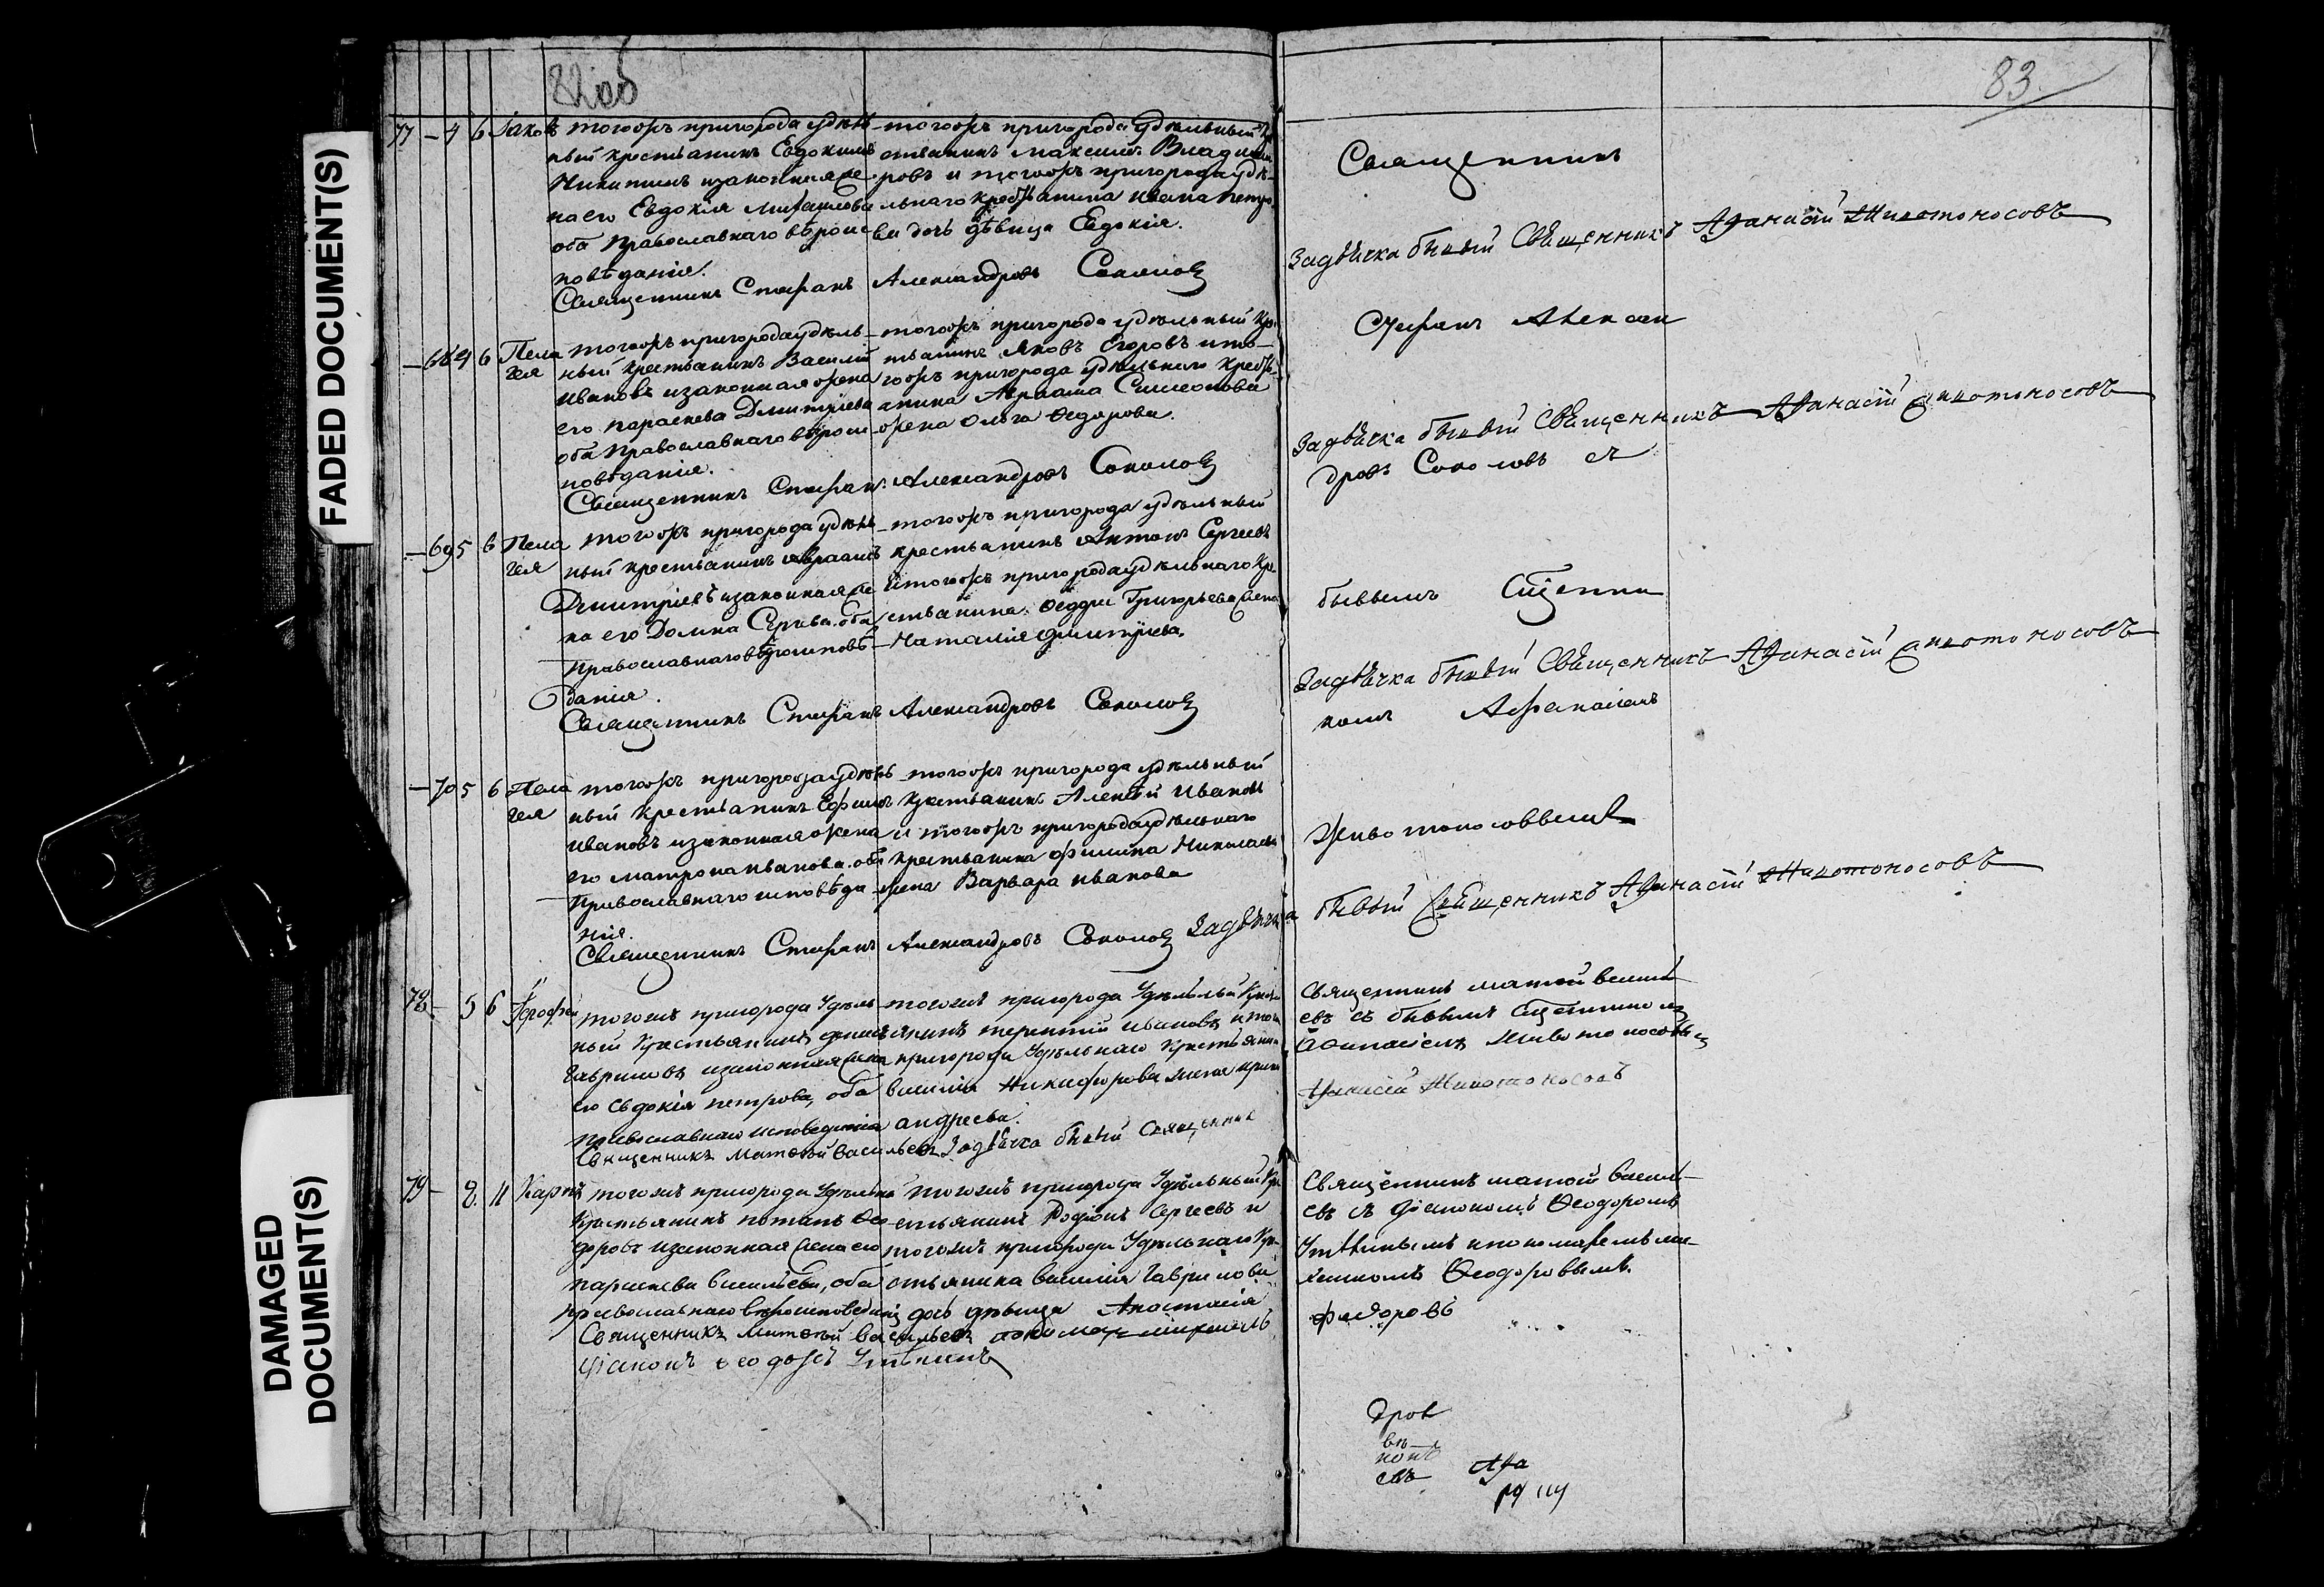 FADED DOCUMENT(S)
DAMAGED DOCUMENT(S)
82об
83
77 – 4 6 Іаковъ
тогожъ пригорода удѣль-
ный крестьянинъ Евдокимъ
Никитинъ и законная же-
на его Евдокія Михайлова
оба православнаго вѣроис-
повѣданія.
тогожъ пригорода удѣльный кре-
стьянинъ Максимъ Владими-
ровъ и тогожъ пригорода удѣ-
льнаго крестьянина Ивана Петро-
ва дочь дѣвица Евдокія.
Священникъ Стефанъ Александровъ Соколовъ
Священникъ
бывый Священникъ Афанасій Животоносовъ
– 68 4 6 Пела
гея
тогожъ пригорода удѣль-
ный крестьянинъ Василій
Ивановъ и законная жена
его Параскева Димитріева
оба православнаго вѣроис-
повѣданія.
тогожъ пригорода удѣльный кре-
стьянинъ Яковъ Егоровъ и то-
гожъ пригорода удѣльнаго кресть-
янина Авраама Симеонова
жена Ольга Ѳедорова.
Священникъ Стефанъ Александровъ Соколовъ
Стефанъ Александ
бывый Священникъ Афанасій Животоносовъ
– 69 5 6 Пела
гея
тогожъ пригорода удѣль-
ный крестьянинъ Авраамъ
Димитріевъ и законная же
на его Домна Сергѣева. оба
православнаго вѣроисповѣ-
данія.
тогожъ пригорода удѣльный
крестьянинъ Антонъ Сергѣевъ
и тогожъ пригорода удѣльнаго кре
стьянина Ѳеодора Григорьева жена
Наталія Димитріева.
Священникъ Стефанъ Александровъ Соколовъ
дровъ Соколовъ съ
бывшимъ Сщенни
бывый Священникъ Афанасій Животоносовъ
– 70 5 6 Пела
гея
тогожъ пригорода удѣль
ный крестьянинъ Ефимъ
Ивановъ и законная жена
его Матрона Иванова. оба
православнаго исповѣда
нія.
тогожъ пригорода удѣльный
крестьянинъ Алексѣй Ивановъ
и тогожъ пригорода удѣльнаго
крестьянина Филипа Николаева
жена Варвара Иванова
Священникъ Стефанъ Александровъ Соколовъ
комъ Афанасіемъ
Животоносовымъ
бывый Священникъ Афанасій Животоносовъ
78 – 5 6 Іерофей
тогожъ пригорода Удѣль
ный Крестьянинъ
Гавриловъ и законная жена
его Евдокія Петрова, оба
православнаго исповеданія
тогожъ пригорода Удѣльный Кресть
янинъ Терентій Ивановъ и тогожъ
пригорода Удѣльнаго Крестьяни
Василія Никифорова жена Ирина
Андреева.
Священникъ Матвѣй Васильевъ бывый Священник
Священникъ Матвей Василь
евъ съ бывымъ Сщенникомъ
Афанасіемъ Животоносовымъ
Афанасій Животоносовъ
79 – 8 11 Карпъ
тогожъ пригорода Удѣльный
Крестьянинъ Потапъ Ѳео
доровъ и законная жена его
Параскева Васильева, оба
православнаго вѣроисповеданія
тогожъ пригорода Удѣльный Кре
стьянинъ Родіонъ Сергеевъ и
тогожъ пригорода Удѣльнаго Кре
стьянина Василія Гаврилова
дочь дѣвица Анастасія
Священникъ Матвѣй Васильевъ
Діаконъ Ѳеодоръ
Священникъ Матвей Василь-
евъ съ Діакономъ Ѳеодоромъ
и пономаремъ Ми-
хаиломъ Ѳеодоровымъ.
Федоровъ
дров
Афа